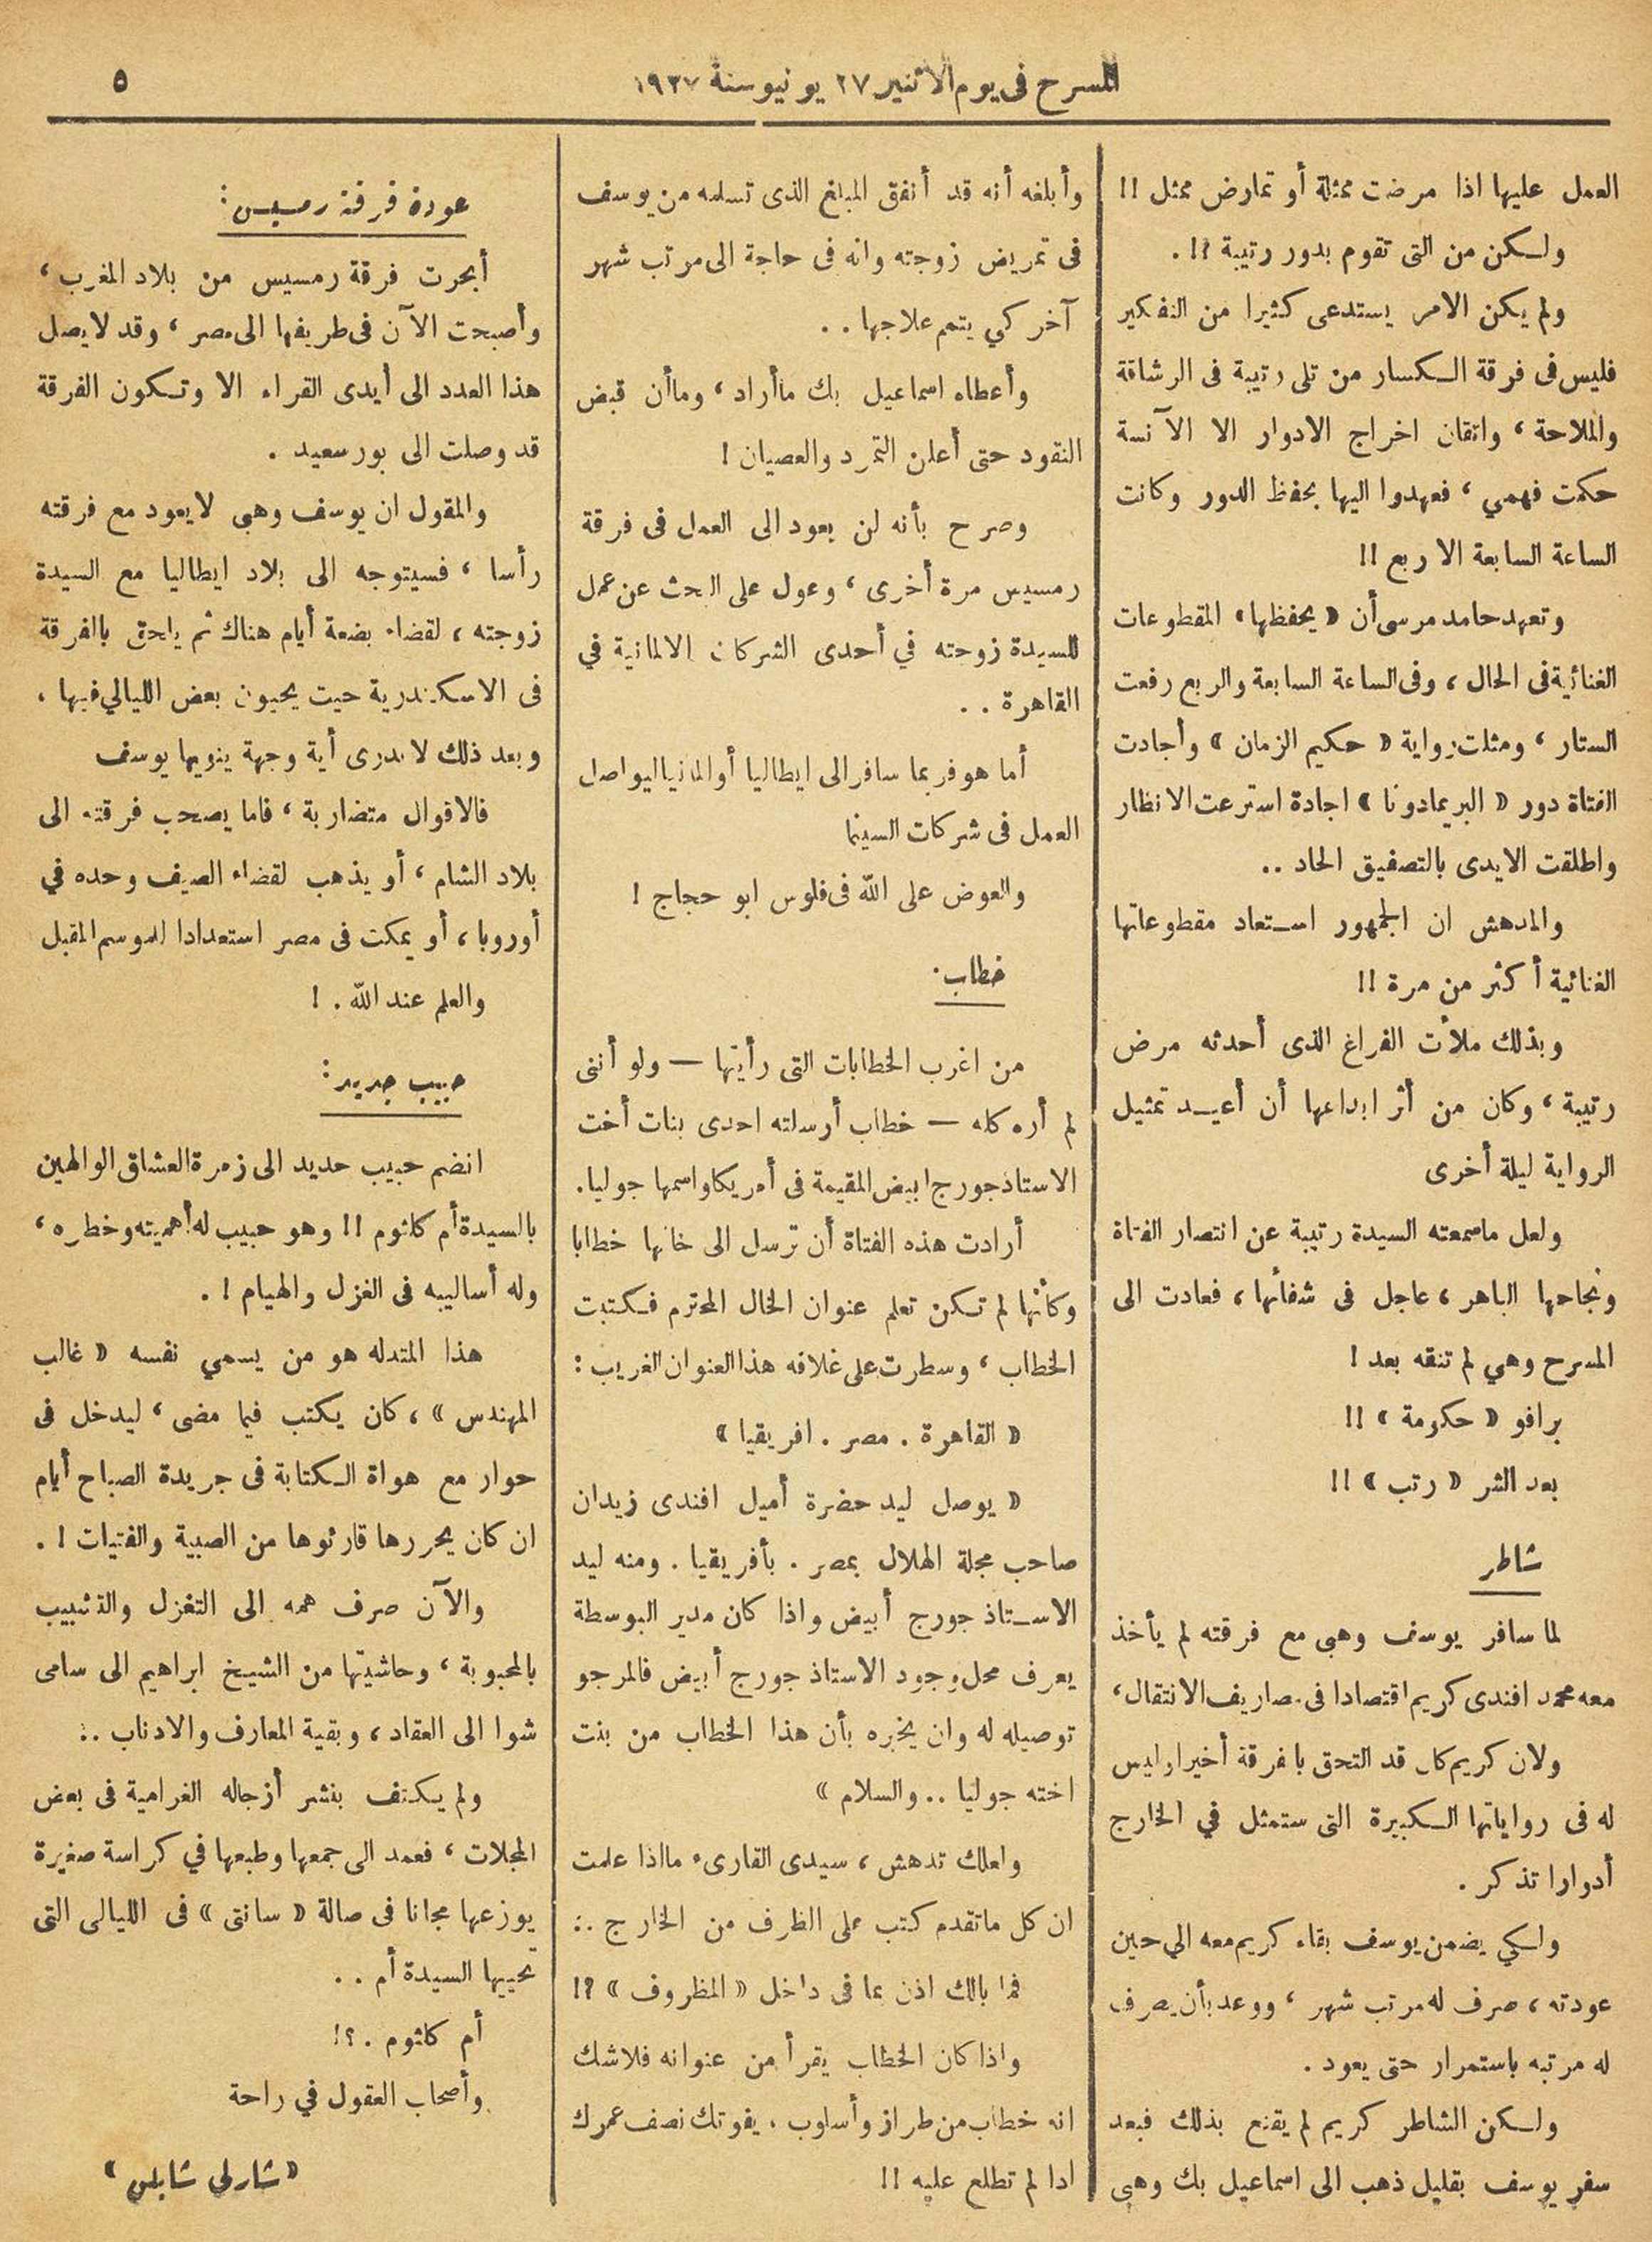 المسرح فى يوم الاثنين ٢٧ يونيو سنة ١٩٢٧
٥
العمل عليها اذا مرضت ممثلة أو تمارض ممثل !!
ولكن من التى تقوم بدور رتيبة ؟! .
ولم يكن الامر يستدعى كثيرا من التفكير
فليس فى فرقة الكسار من تلى رتيبة فى الرشاقة
والملاحة ، واتقان اخراج الادوار الا الآنسة
حكمت فهمي ، فعهدوا اليها بحفظ الدور وكانت
الساعة السابعة الا ربع !!
وتعهد حامد مرسى أن « يحفظها » المقطوعات
الغنائية فى الحال ، وفى الساعة السابعة والربع رفعت
الستار ، ومثلت رواية « حكيم الزمان » وأجادت
الفتاة دور « البريمادونا » اجادة استرعت الانظار
واطلقت الايدى بالتصفيق الحاد ..
والمدهش ان الجمهور استعاد مقطوعاتها
الغنائية أكثر من مرة !!
وبذلك ملأت الفراغ الذى أحدثه مرض
رتيبة ، وكان من أثر ابداعها أن أعيد تمثيل
الرواية ليلة أخرى
ولعل ماسمعته السيدة رتيبة عن انتصار الفتاة
ونجاحها الباهر ، عاجل فى شفائها ، فعادت الى
المسرح وهي لم تنقه بعد !
برافو « حكومة » !!
بعد الشر « رتب » !!
شاطر
لما سافر يوسف وهبى مع فرقته لم يأخذ
معه محمد افندى كريم اقتصادا فى مصاريف الانتقال ،
ولان كريم كان قد التحق بالفرقة أخيرا وليس
له فى رواياتها الكبيرة التى ستمثل في الخارج
أدوارا تذكر .
ولكي يضمن يوسف بقاء كريم معه الي حين
عودته ، صرف له مرتب شهر ، ووعد بأن يصرف
له مرتبه باستمرار حتى يعود .
ولكن الشاطر كريم لم يقنع بذلك فبعد
سفر يوسف بقليل ذهب الى اسماعيل بك وهبى
وأبلغه أنه قد أنفق المبلغ الذى تسلمه من يوسف
فى تمريض زوجته وانه فى حاجة الى مرتب شهر
آخر كي يتمم علاجها . .
وأعطاه اسماعيل بك ماأراد ، وماأن قبض
النقود حتى أعلن التمرد والعصيان !
وصرح بأنه لن يعود الى العمل فى فرقة
رمسيس مرة أخرى ، وعول على البحث عن عمل
للسيدة زوجته في أحدى الشركات الالمانية في
القاهرة . .
أما هو فربما سافر الى ايطاليا أو المانيا ليواصل
العمل فى شركات السينما
والعوض على الله فى فلوس ابو حجاج !
خطاب .
من اغرب الخطابات التى رأيتها — ولو أننى
لم أره كله — خطاب أرسلته احدى بنات أخت
الاستاذ جورج ابيض المقيمة فى أمريكا واسمها جوليا .
أرادت هذه الفتاة أن ترسل الى خالها خطابا
وكأنها لم تكن تعلم عنوان الخال المحترم فكتبت
الخطاب ، وسطرت على غلافه هذا العنوان الغريب :
« القاهرة . مصر . افريقيا »
« يوصل ليد حضرة أميل افندى زيدان
صاحب مجلة الهلال بمصر . بأفريقيا . ومنه ليد
الاستاذ جورج أبيض واذا كان مدير البوسطة
يعرف محل وجود الاستاذ جورج أبيض فالمرجو
توصيله له وان يخبره بأن هذا الخطاب من بنت
اخته جوليا .. والسلام »
ولعلك تدهش ، سيدى القارىء مااذا علمت
ان كل ماتقدم كتب على الظرف من الخارج ..
فما بالك اذن بما فى داخل « المظروف » ؟!
واذا كان الخطاب يقرأ من عنوانه فلاشك
انه خطاب من طراز وأسلوب ، يفوتك نصف عمرك
اذا لم تطلع عليه !!
عودة فرقة رمسيس :
أبحرت فرقة رمسيس من بلاد المغرب ،
وأصبحت الآن فى طريقها الى مصر ، وقد لا يصل
هذا العدد الى أيدى القراء الا وتكون الفرقة
قد وصلت الى بور سعيد .
والمقول ان يوسف وهبى لايعود مع فرقته
رأسا ، فسيتوجه الى بلاد ايطاليا مع السيدة
زوجته ، لقضاء بضعة أيام هناك ثم يلحق بالفرقة
فى الاسكندرية حيت يحيون بعض الليالي فيها .
وبعد ذلك لا ندرى أية وجهة ينويها يوسف
فالاقوال متضاربة ، فاما يصحب فرقته الى
بلاد الشام ، أو يذهب لقضاء الصيف وحده في
أوروبا ، أو يمكت فى مصر استعدادا للموسم المقبل
والعلم عند الله . !
حبيب جديد :
انضم حبيب جديد الى زمرة العشاق الوالهين
بالسيدة أم كلثوم !! وهو حبيب له أهميته وخطره ،
وله أساليبه فى الغزل والهيام ! .
هذا المتدله هو من يسمي نفسه « غالب
المهندس » ، كان يكتب فيما مضى ، ليدخل فى
حوار مع هواة الكتابة فى جريدة الصباح أيام
ان كان يحررها قارئوها من الصبية والفتيات ! .
والآن صرف همه الى التغزل والتشبيب
بالمحبوبة ، وحاشيتها من الشيخ ابراهيم الى سامى
شوا الى العقاد ، وبقية المعارف والاذناب ..
ولم يكتف بنشر أزجاله الغرامية فى بعض
المجلات ، فعمد الى جمعها وطبعها في كراسة صغيرة
يوزعها مجانا فى صالة « سانتى » فى الليالى التى
تحييها السيدة أم . .
أم كلثوم . ؟!
وأصحاب العقول في راحة
« شارلى شابلن »